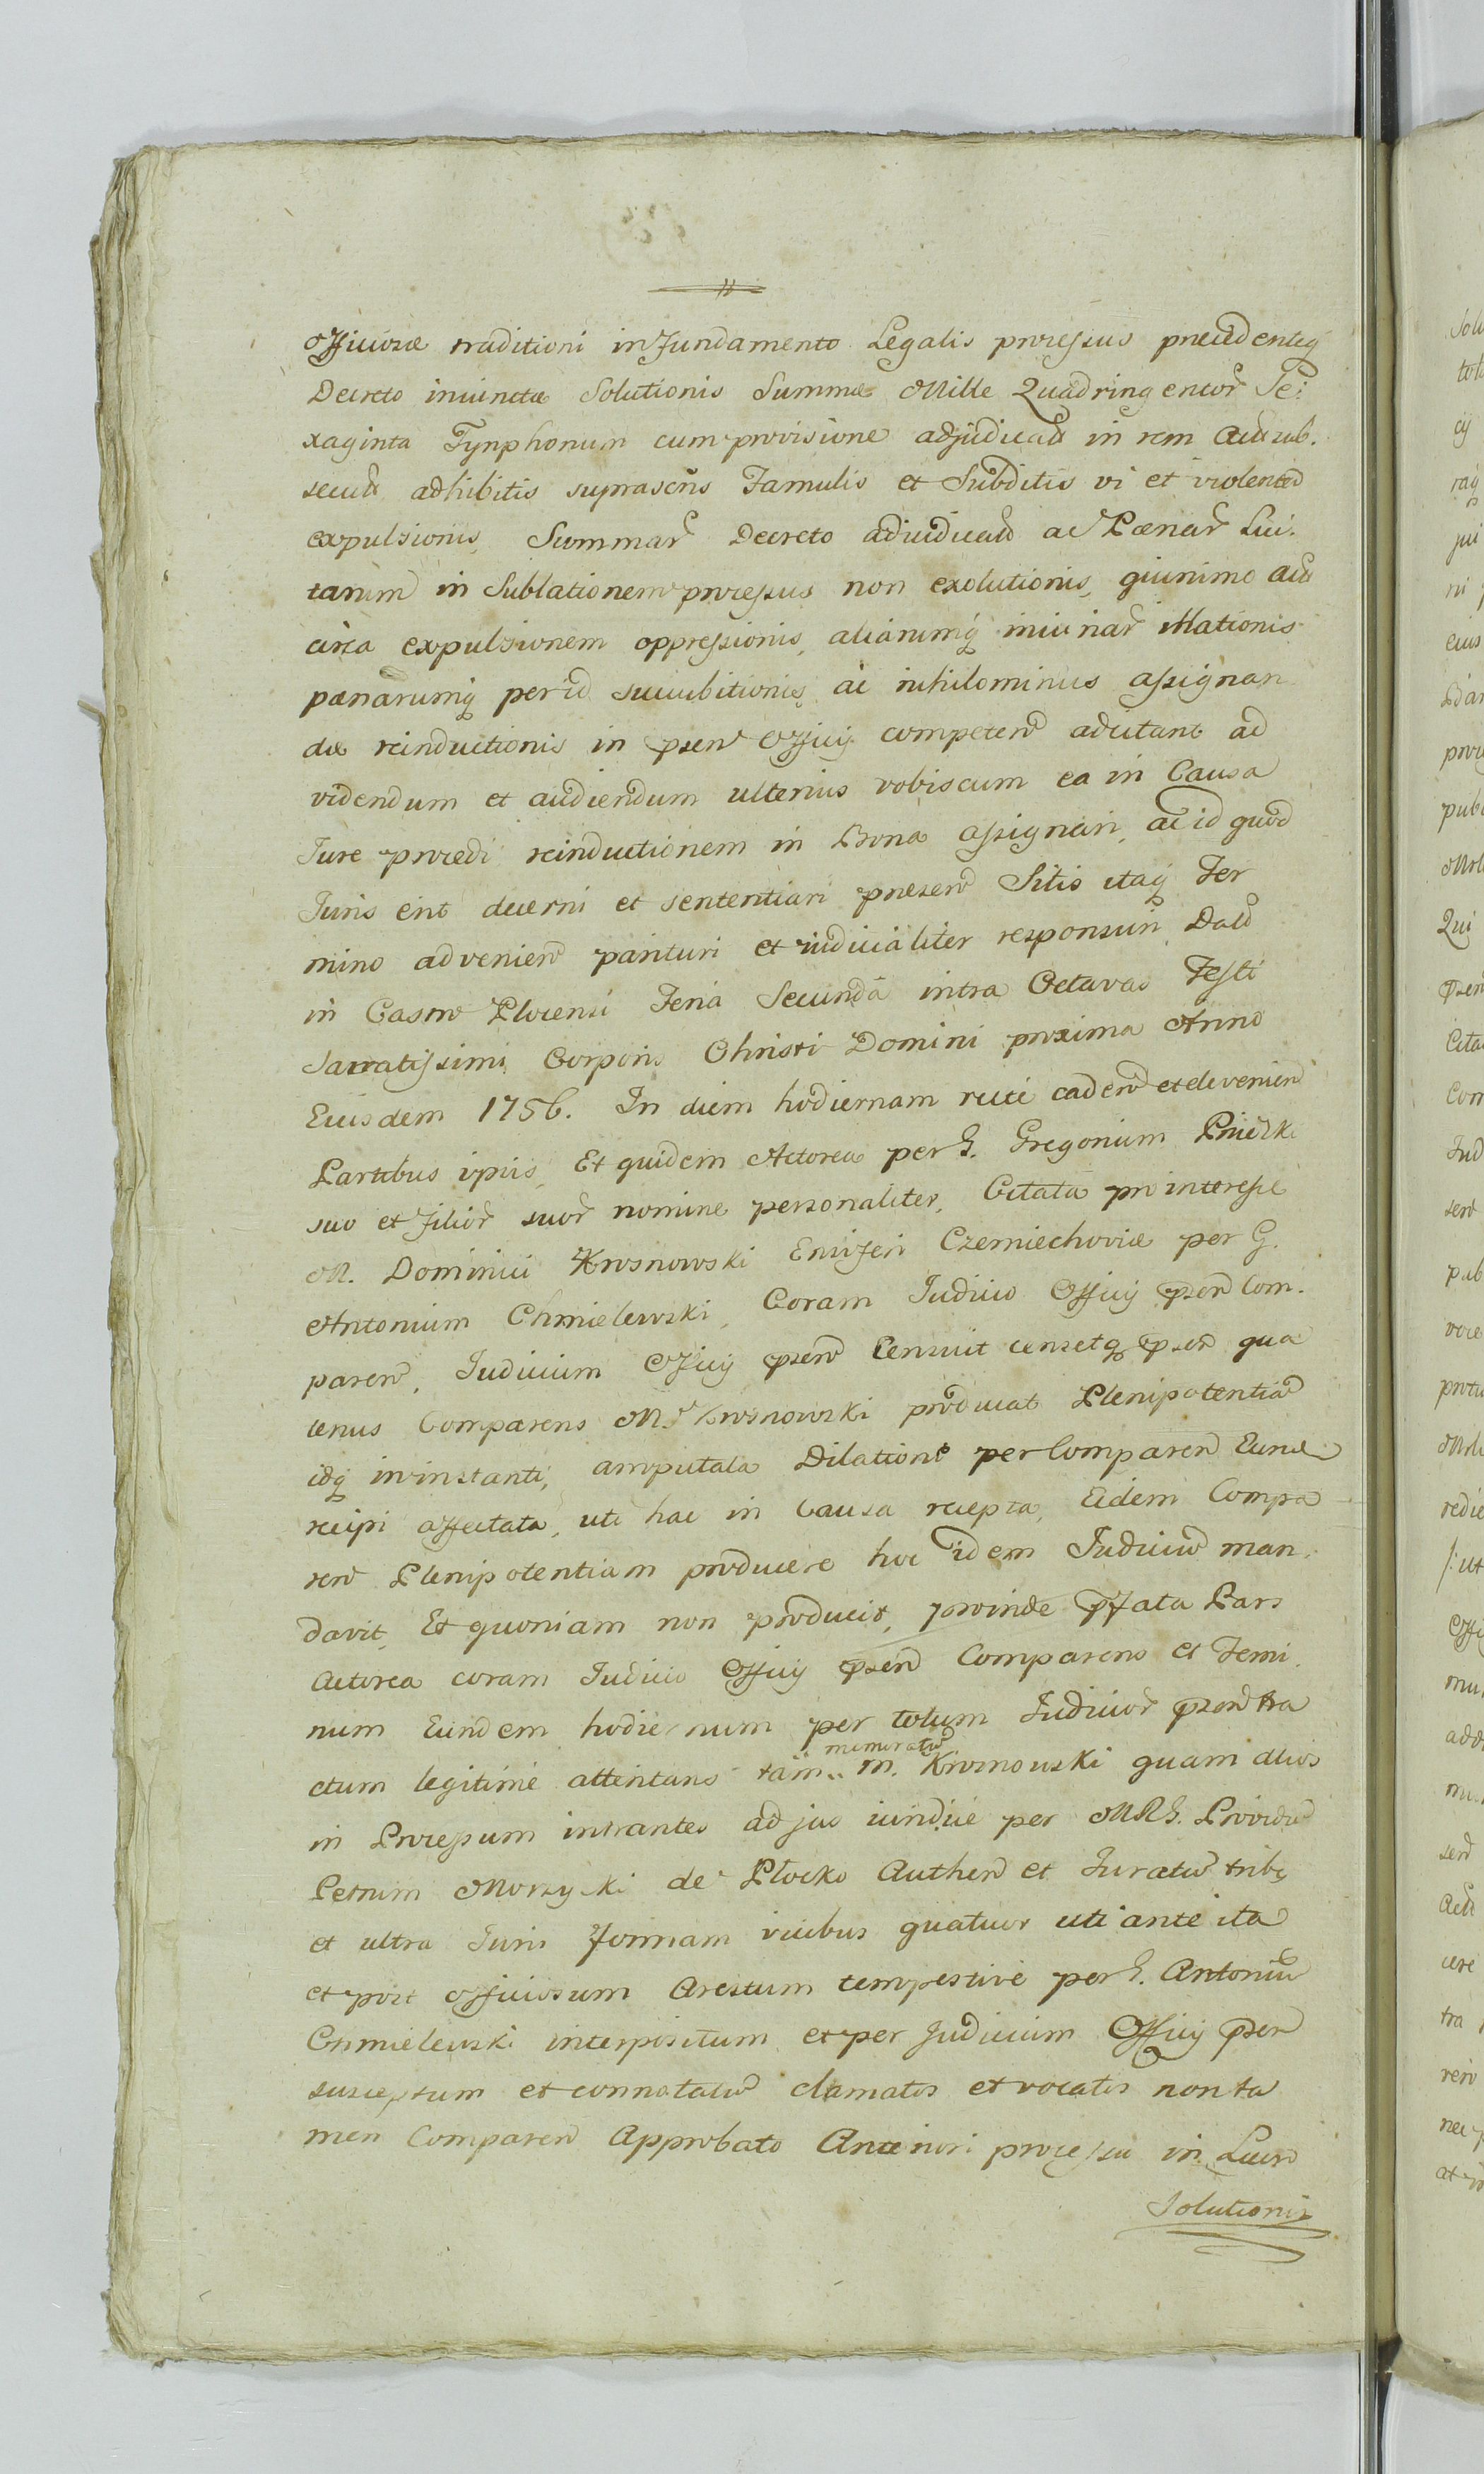 officiosæ traditioni in fundamento Legalis processus præcedenteq
Decreto iniunctæ Solutionis Summæ Mille Quadringentor Se:
xaginta Tynphonum cum provisione adjudicatæ in rem Actæ sub.
secutæ adhibitis suprascris Famulis et Subditis vi et violentæ
expulsionis, Summar Decreto adiudicatæ ac Pænar Lui.
tarum in Sublationem processus non exolutionis, quinimo actæ
circa expulsionem oppressionis, aliarumq iniuriar illationis
pænarumq per id succubitionis, ac nihilominus assignan
dæ reinductionis in præsen Officij competen adcitant ad
videndum et audiendum ulterius vobiscum ea in Causa
Jure procedi reinductionem in Bona assignari, ac id quod
Juris erit decerni et sententiari præsen Sitis itaq Ter
mino advenien parituri et iudicialiter responsuri, Dat
in Castro Plocensi Feria Secunda intra Octavas Festi
Sacratissimi Corporis Christi Domini proxima Anno
Eiusdem 1756. In diem hodiernam recte caden et devenien
Partibus ipsis, Et quidem Actorea per G. Gregorium Pnieski
suo et filior suor nomine personaliter, Citata pro interesse
M. Dominici Krosnowski Ensiferi Czerniechoviæ per G.
Antonium Chmielewski, Coram Judicio Officij præsen Com.
paren, Judicium Officij præsen Censuit censetq præsen qua
tenus Comparens M. Krosnowski producat Plenipotentiam
idq in instanti, amputata Dilatione per Comparen Eunde
recipi affectata, uti hac in Causa recepta, Eidem Compa
ren Plenipotentiam producere hoc idem Judicium man
davit, Et quoniam non producit, proinde præfata Pars
Actorea coram Judicio Officij præsen Comparens et Termi
num Eundem hodiernum per totum Judicior præsen tra
ctum legitime attentans tam memoratum M. Krosnowski quam alios
in Processum intrantes ad jus iundicie per MRG. Providum
Petrum Morzycki de Plocko Authen et Juratum tribq
et ultra Juris formam vicibus quatuor uti ante ita
et post officiosum Arestum tempestive per G. Antonium
Chmielewski interpositum et per Judicium Officij præsen
susceptum et connotatum clamatos et vocatos non ta
men Comparen Approbato Anteriori processu in Lucro
Solutionis